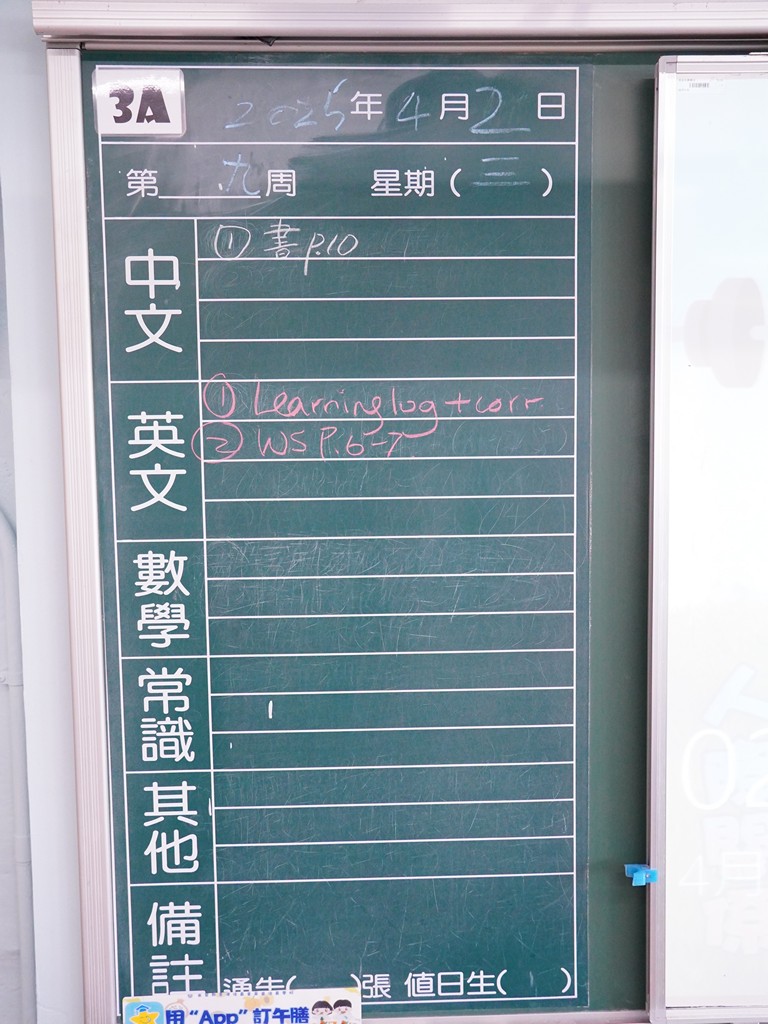 3A 2025年4月2日
第九周 星期(三)
中文
① 書 p.10
英文
① Learning log + corr.
② WS P.6-7
數學
常識
其他
備註
通告( )張 值日生( )
用“App”訂午膳
02
4月